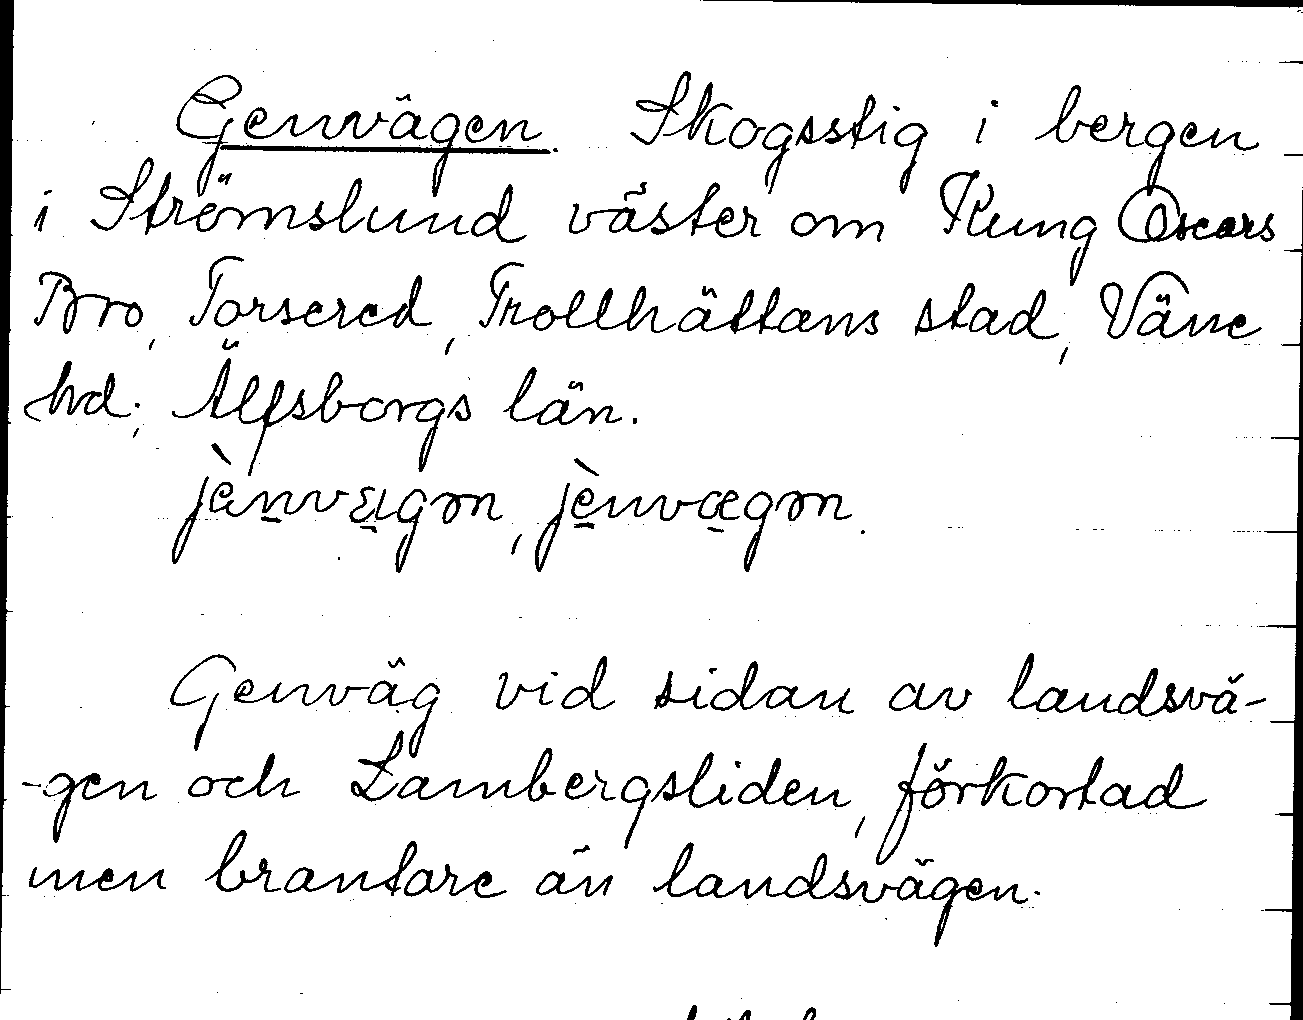 Genvägen. Skogsstig i bergen
i Strömslund väster om Kung Oscars
Bro, Torsered, Trollhättans stad, Väne
hd; Älfsborgs län.
jènvɛgən, jènvægən.
Genväg vid sidan av landsvä-
-gen och Lambergsliden, förkortad
men brantare än landsvägen.